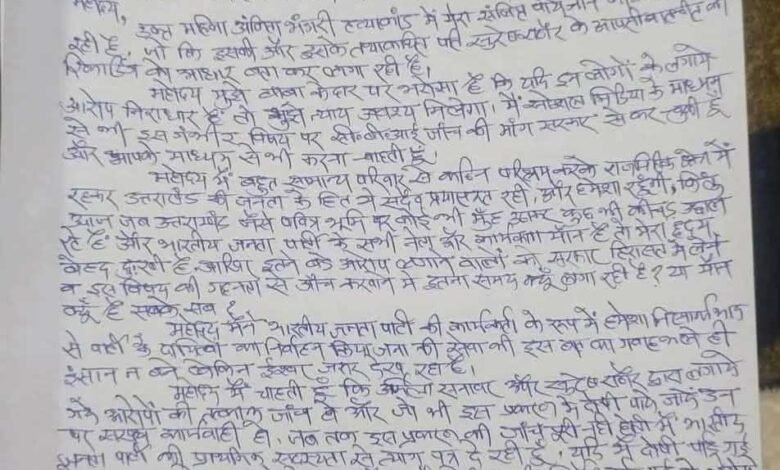 महोदय,
उक्त महिला अंकिता भंडारी हत्याकांड में मेरा संलिप्त
रही है, जो कि इसकी और इसके तथाकथित पति सुरेश राठौर के आपसी वातचीत की
रिकॉर्डिंग को आधार बता कर लगा रही है।
महोदय मुझे बाबा केदार पर भरोसा है कि यदि इन लोगों के लगाये
आरोप निराधार है तो मुझे न्याय अवश्य मिलेगा। मैं सोशल मिडिया के माध्यम
से भी इस गंभीर विषय पर सी०बी०आई जाँच की मांग सरकार से कर चुकी हूँ
और आपके माध्यम से भी करना चाहती हूँ।
महोदय मैं बहुत सामान्य परिवार से कठिन परिश्रम करके राजनितिक क्षेत्र में
रहकर उत्तराखंड की जनता के हित में सदैव प्रयासरत रही, और हमेशा रहूँगी, किंतु
आज जब उत्तराखण्ड जैसे पवित्र भूमि पर कोई भी मुँह उठाकर कुछ भी कीचड़ उछाल
रहे है और भारतीय जनता पार्टी के सभी नेता और कार्यकर्ता मौन है तो मेरा हृदय
बेहद दुःखी है, आखिर इतने बड़े आरोप लगाने वालों को सरकार हिरासत में लेने
व इस विषय की गहनता से जाँच करवाने में इतना समय क्यूँ लगा रही है? या मौन
क्यूँ है सबके सब?
महोदय मैंने भारतीय जनता पार्टी की कार्यकर्ता के रूप में हमेशा निस्वार्थ भाव
से पार्टी के दायित्वों का निर्वहन किया जनता की सेवा की इस बात का गवाह भले ही
इंसान न बने लेकिन ईश्वर जरूर देख रहा है।
महोदय मैं चाहती हूँ कि उर्मिला सनावर और सुरेश राठौर द्वारा लगाये
गये आरोपों की तत्काल जांच हो और जो भी इस प्रकरण में दोषी पाये जाये उन
पर सख्त कार्यवाही हो, जब तक इस प्रकरण की जाँच पूरी नही होती मैं भारतीय
जनता पार्टी की प्राथमिक सदस्यता से त्याग पत्र दे रही हूँ, यदि मैं दोषी पाई गई